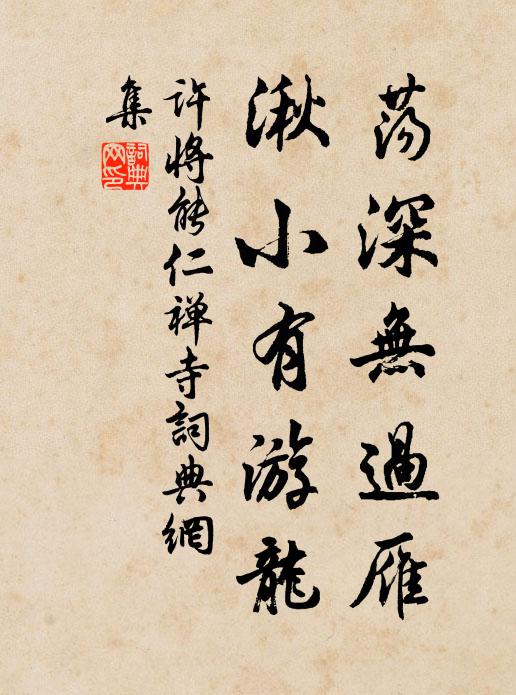 荡深無過雁
湫小有游龍
许將能仁禅寺詞典網
集
詞典網印